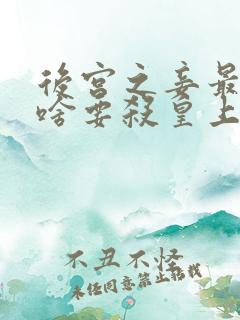 後宮之妾最
啥要殺皇上
不丑不怪
未经同意禁止转载